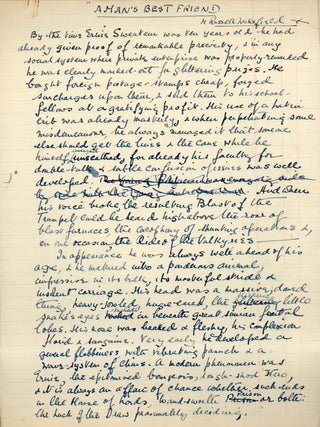 A MAN'S BEST FRIEND
H. Russell Wakefield
By the time Ernie Sweatem was ten years old he had
already given proof of remarkable precocity, & in any
social system where private enterprise was properly rewarded
he was clearly marked out for glittering prizes. He
bought foreign postage-stamps cheap, forged
surcharges upon them, & sold them to his school-
fellows at a gratifying profit. His use of a Latin
crib was already masterly, & when perpetrating some
misdemeanour, he always managed it that someone
else should get the lines & the cane while he
himself, unscathed, for already his faculty for
double-talk & subtle confusion of issues was well
developed. And when
his voice broke the resulting Blast of the
Trumpet could be heard high above the roar of
blast furnaces, the cacophony of shunting operations &,
on one occasion, the Ride of the Valkyries
In appearance he was always well ahead of his
age, & he matured into a ponderous animal,
impressive in its hefty, its wonderful stride &
insolent carriage. His head was a massive, domed
thing, heavy-jowled, huge-eared, the little
snake's eyes beneath great simian frontal
lobes. His nose was beaked & fleshy, his complexion
florid & sanguine. Very early he developed a
general flabbiness with vibrating paunch & a
wave-system of chins. A modern phenomenon was
Ernie, the epitomised bourgeois, tough-shod Hero,
& it is always an affair of chance whether such ends
in the House of Lords, Wandsworth Prison or both:
the luck of the Draw presumably deciding.